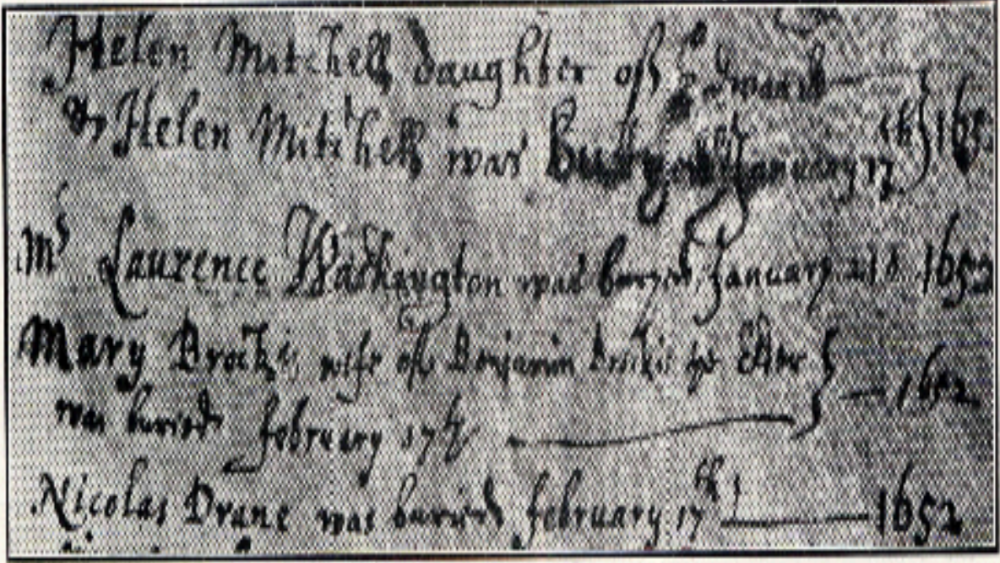 Helen Mitchell daughter of Edward
& Helen Mitchell was buryed January 17th 165
Mr Laurence Washington was buryed January 21d 1652
Mary Brockis wife of Benjamin
was buried february 17th 1652
Nicolas Drane was buried february 17th 1652